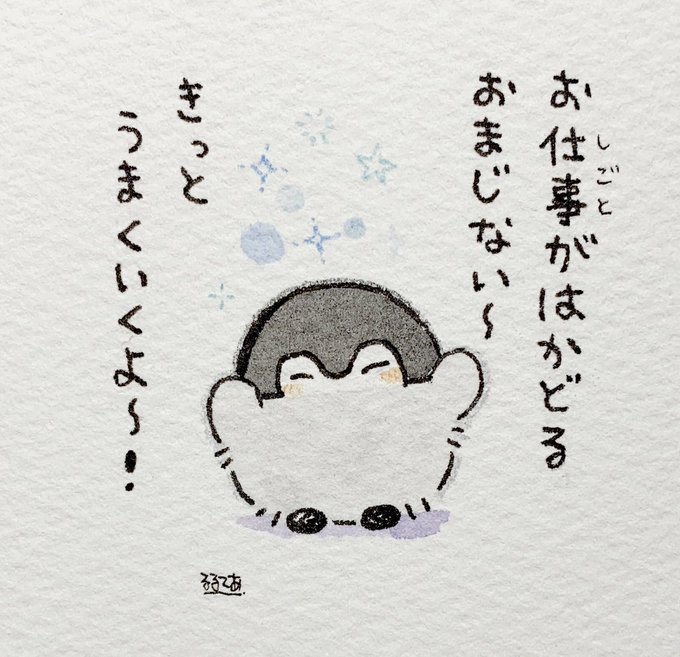 お仕事がはかどる
しごと
おまじない〜
きっと
うまくいくよ〜!
るるてあ